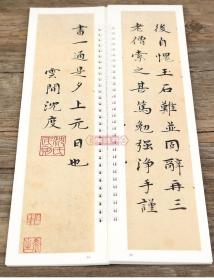 後自愧玉石難並固辭再三
老僧索之甚篤勉强净手謹
書一通是夕上元日也
雲間沈度